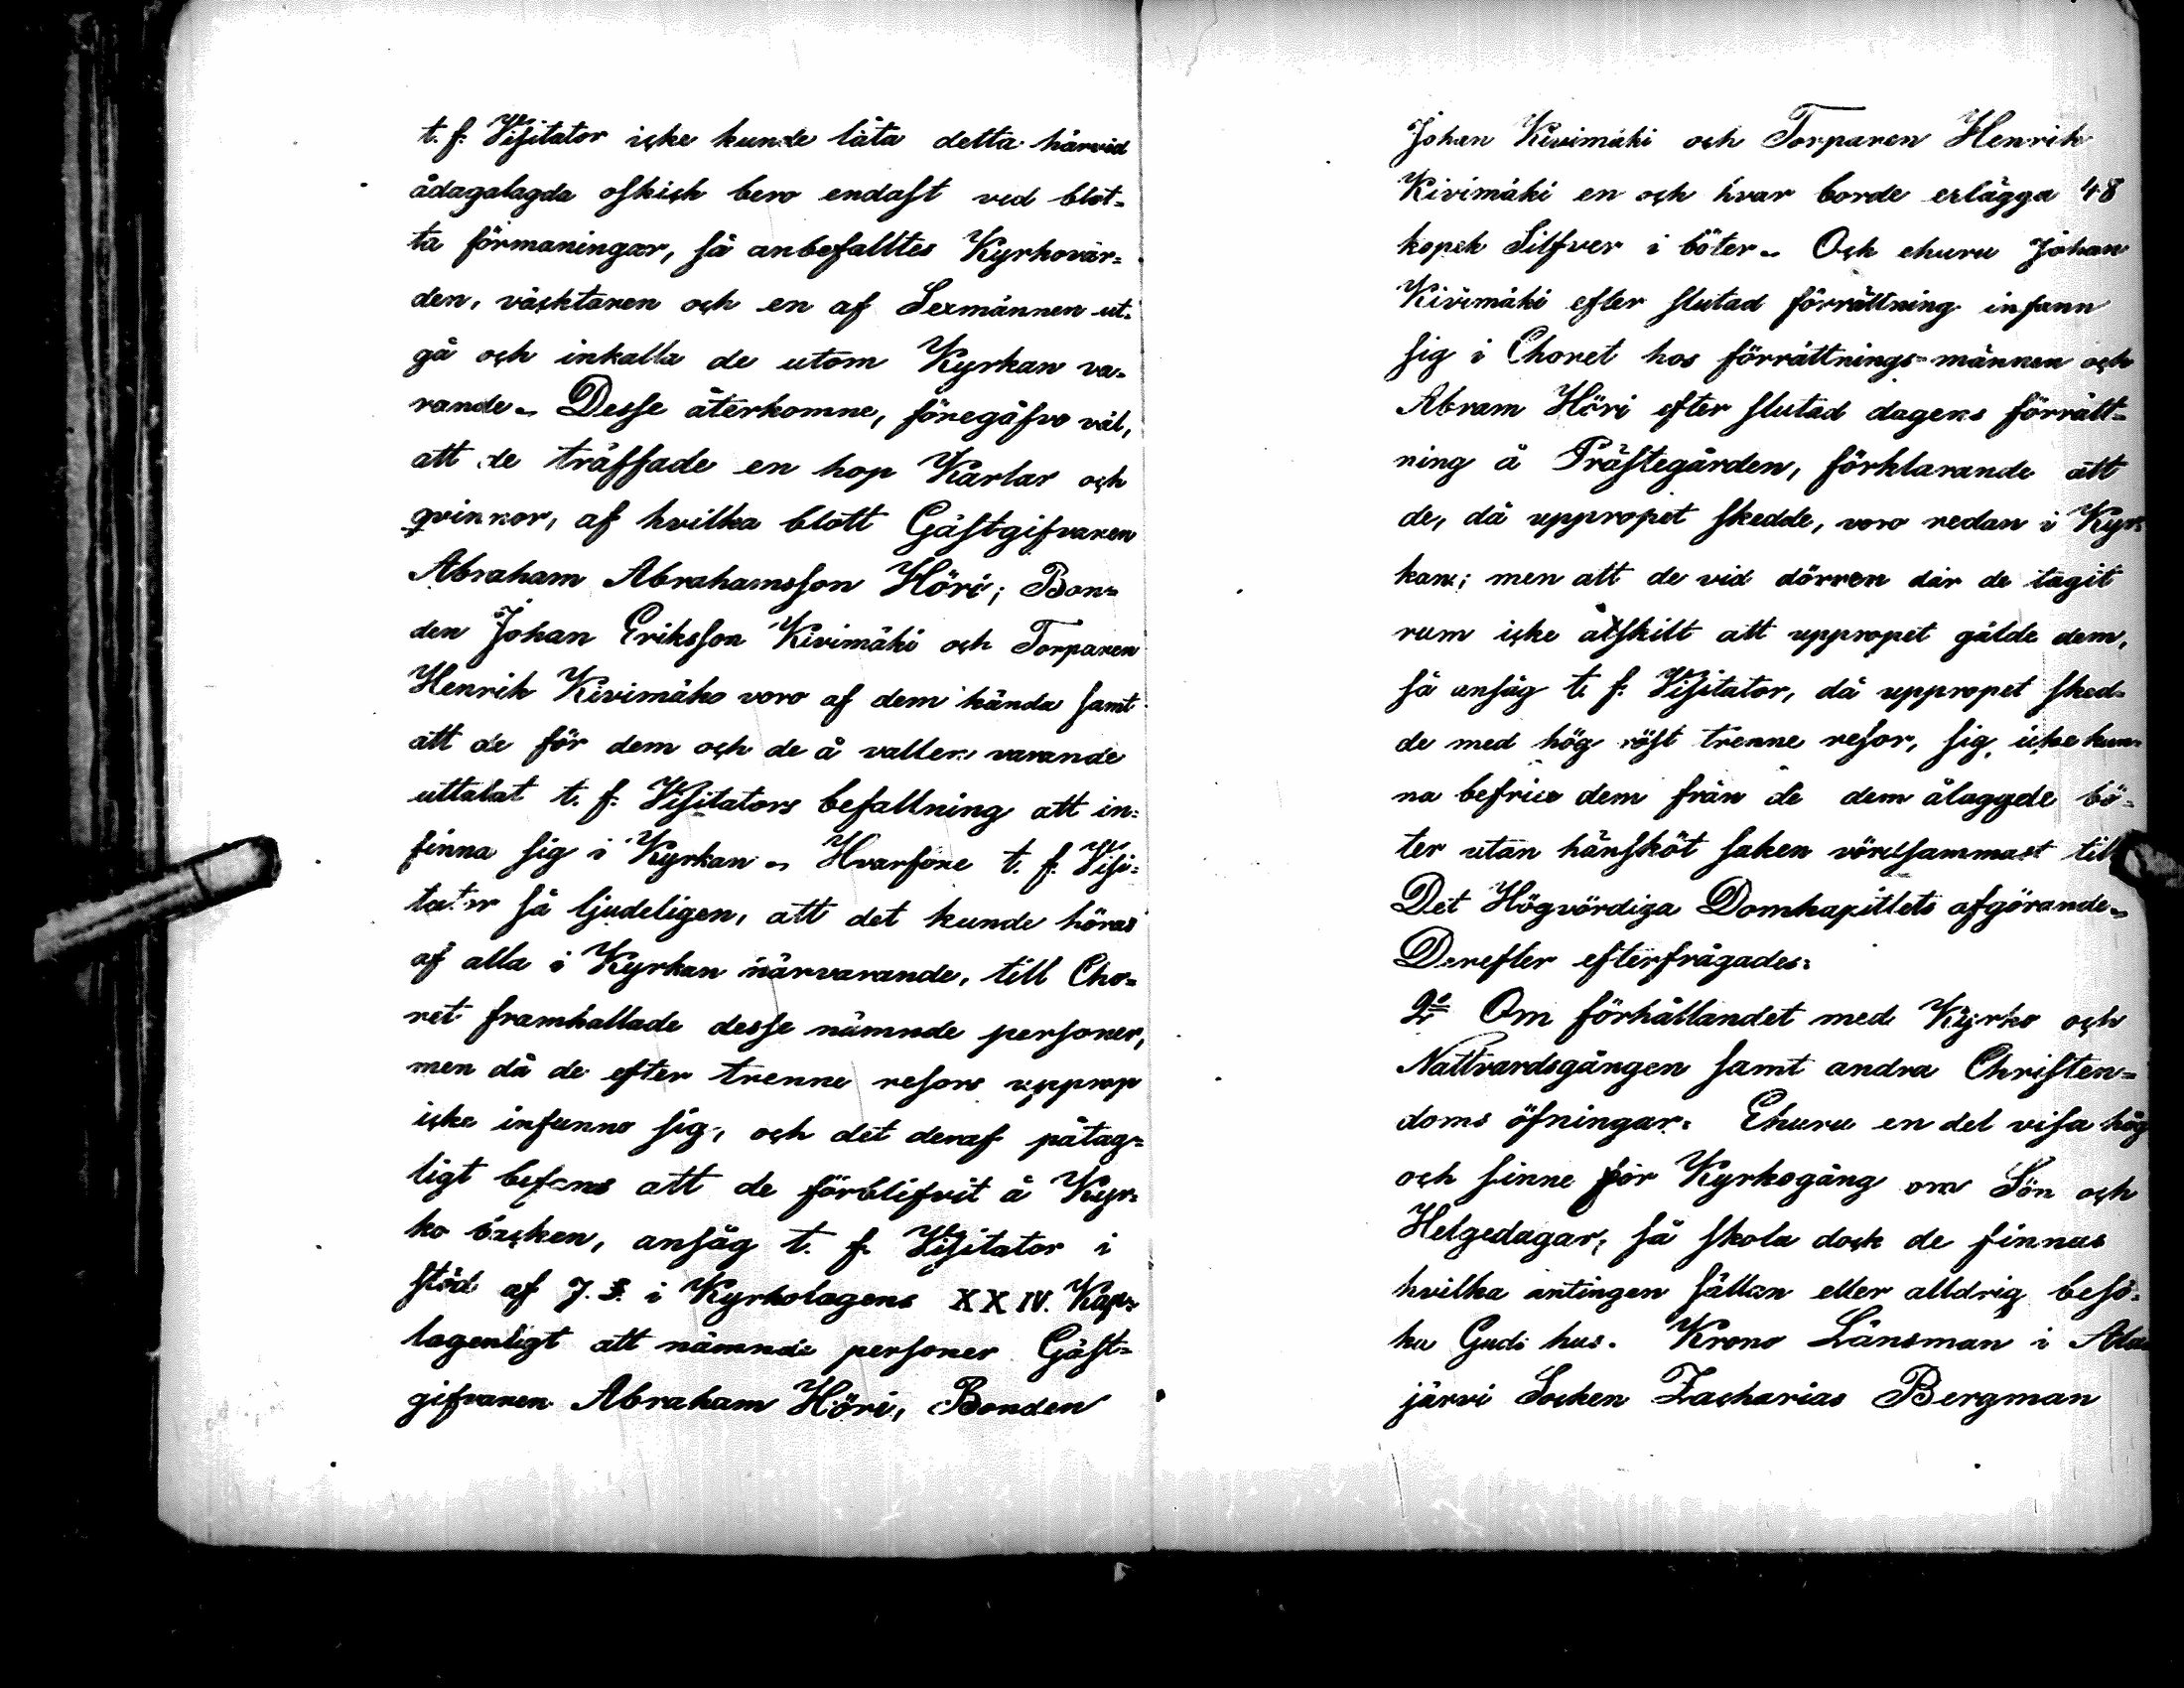 t. f. Visitator icke kunde låta detta härvid
ådagalagda oskick bero endast ved blot-
ta förmaningar, så anbefalltes Kyrkovär-
den, väcktaren och en af Sexmännen ut-
gå och inkalla de utom Kyrkan va-
rande. Desse återkomne, föregåfvo väl,
att de träffade en hop Karlar och
qvinnor, af hvilka blott Gästgifvaren
Abraham Abrahamsson Höri; Bon-
den Johan Eriksson Kivimäki och Torparen
Henrik Kivimäko voro af dem kända samt
att de för dem och de å vallen varande
uttalat t. f. Visitators befallning att in-
finna sig i Kyrkan. Hvarföre t. f. Visi-
tator så ljudeligen, att det kunde höras
af alla i Kyrkan närvarande, till Cho-
ret framkallade desse nämnde personer,
men då de efter trenne resors upprop
icke infunno sig, och det deraf påtag-
ligt befans att de förblifvit å Kyr-
ko backen, ansåg t. f. Visitator i
stöd af 7. §. i Kyrkolagens XXIV. Kap.
lagenligt att nämnde personer Gäst-
gifvaren Abraham Höri, Bonden
Johan Kivimäki och Torparen Henrik
Kivimäki en och hvar borde erlägga 48
kopek Silfver i böter. Och ehuru Johan
Kivimäki efter slutad förrättning infann
sig i Choret hos förrättnings-männen och
Abram Höri efter slutad dagens förrätt-
ning å Prästegården, förklarande att
de, då uppropet skedde, voro redan i Kyr-
kan; men att de vid dörren där de tagit
rum icke åtskilt att uppropet gälde dem,
så ansåg t. f. Visitator, då uppropet sked-
de med hög röst trenne resor, sig icke kun-
na befria dem från de dem ålaggde bö-
ter utan hänsköt saken vördsammast till
Det Högvördiga Domkapitlets afgörande.
Derefter efterfrågades:
Om förhållandet med Kyrko och
Nattvardsgången samt andra Christen-
doms öfningar. Ehuru en del visa håg
och sinne för Kyrkogång om Sön och
Helgedagar, så skola dock de finnas
hvilka antingen sällan eller alldrig besö-
ka Guds hus. Krono Länsman i Ala-
järvi Socken Zacharias Bergman